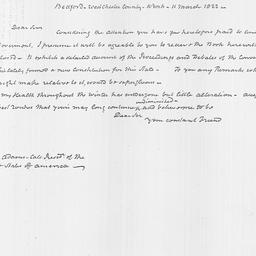 Bedford. West Chester County. N York - 11 March 1822 -
Dear Sir
Considering the attention you have you heretofore paid to
Government, I presume it will be agreeable to you to receive the Book herewith
closed - It exhibits a detailed account of the Proceedings and Debates of the Conven
lately formed a new Constitution for this State - To you any Remarks wh
might make relative to it, would be superfluous -
my Health throughout the winter has undergone but little alteration -
that you may long continue and welcome to be
diminished -
Dear Sir
your constant Friend
Adams - late Presidt. of the
States of America -